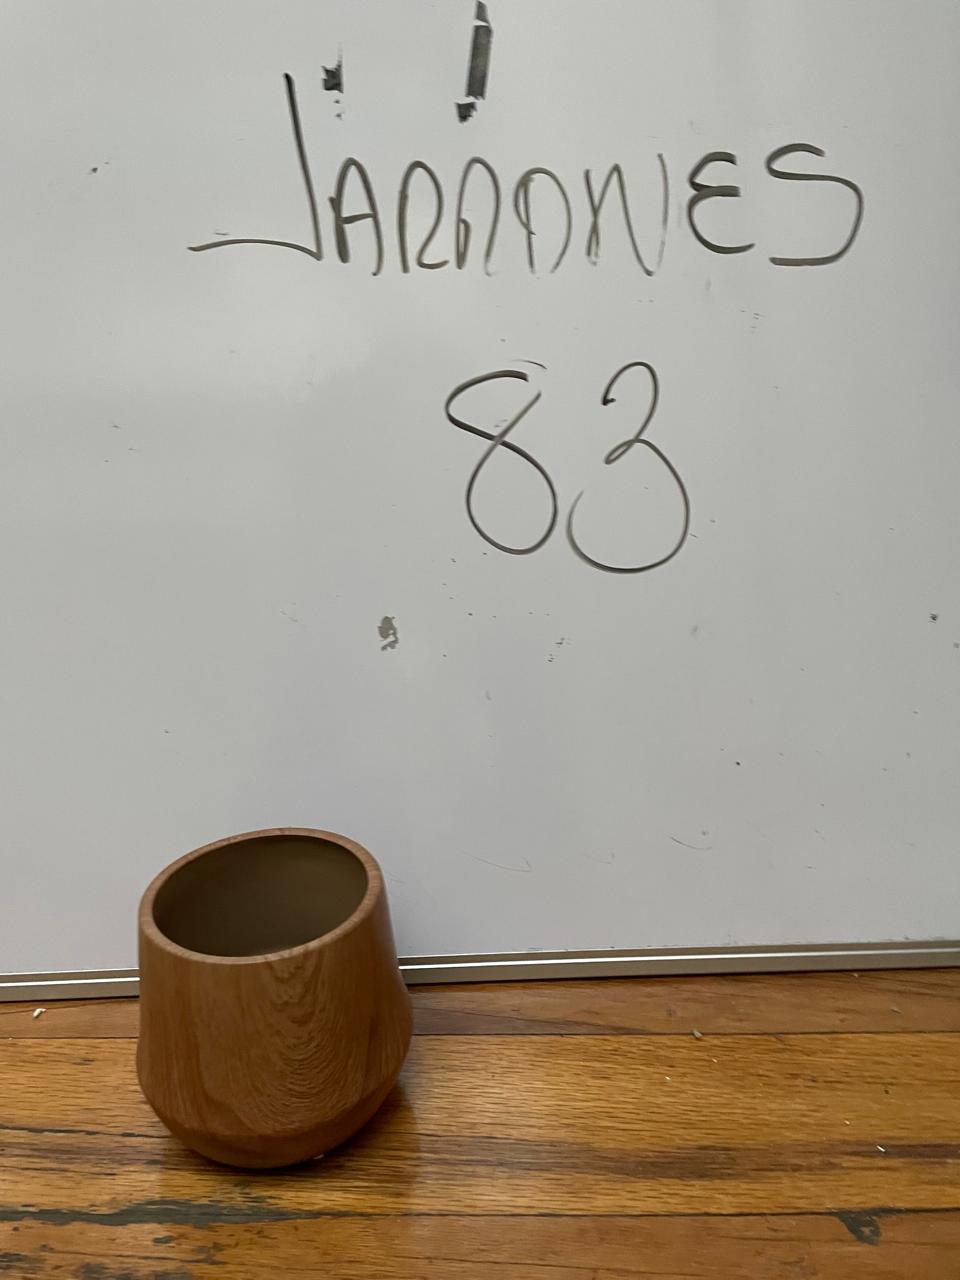 JARRONES
83